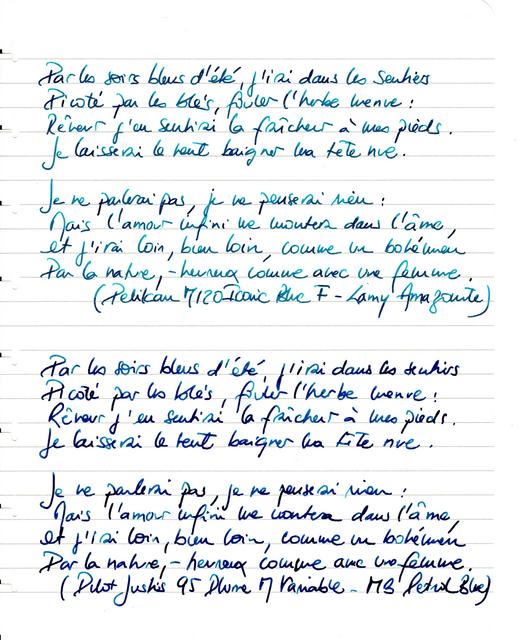 Par les soirs bleus d'été, j'irai dans les sentiers
Picoté par les blés, fouler l'herbe menue :
Rêveur j'en sentirai la fraîcheur à mes pieds.
Je laisserai le vent baigner ma tête nue.
Je ne parlerai pas, je ne penserai rien :
Mais l'amour infini me montera dans l'âme,
et j'irai loin, bien loin, comme un bohémien
Par la nature, - heureux comme avec une femme.
(Pelikan M120 Iconic Blue F - Lamy Amazonite)
Par les soirs bleus d'été, j'irai dans les sentiers
Picoté par les blés, fouler l'herbe menue :
Rêveur j'en sentirai la fraîcheur à mes pieds.
Je laisserai le vent baigner ma tête nue.
Je ne parlerai pas, je ne penserai rien :
Mais l'amour infini me montera dans l'âme,
et j'irai loin, bien loin, comme un bohémien
Par la nature, - heureux comme avec une femme.
(Pilot Justus 95 Plume M Variable - MB Petrol Blue)